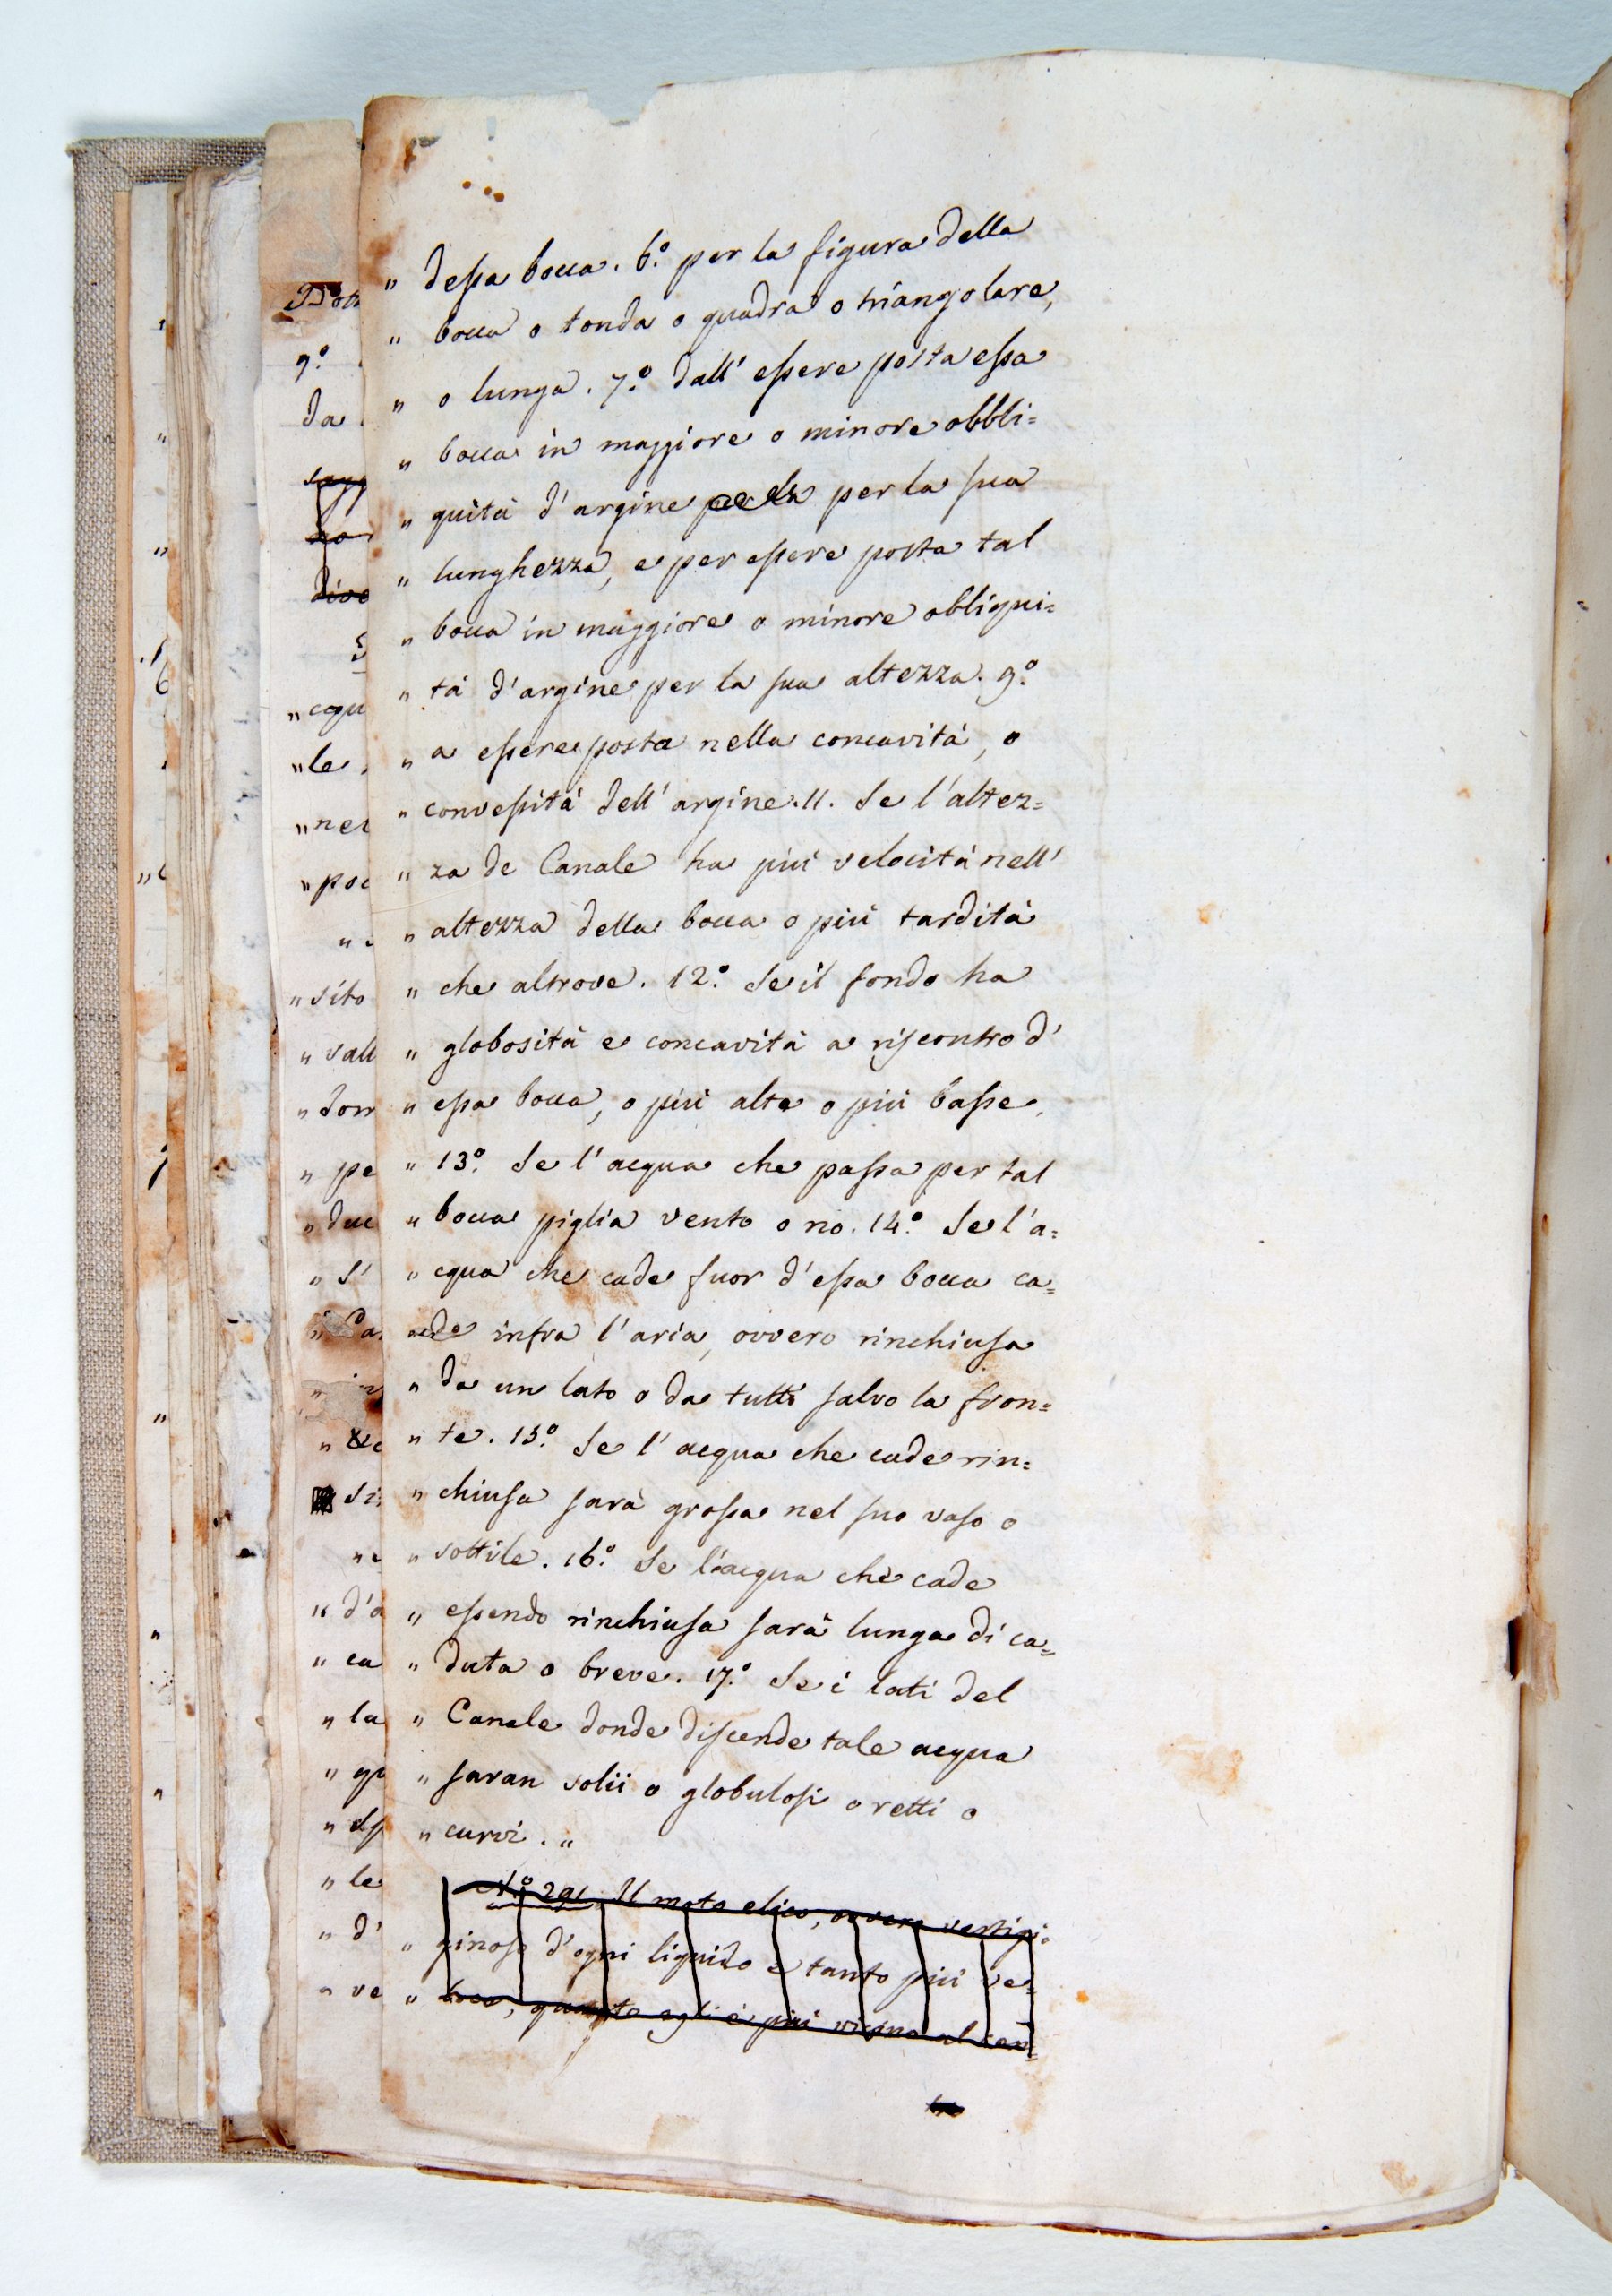 " dessa bocca. 6.° per la figura della
" bocca o tonda o quadra o triangolare,
" o lunga. 7.° dall' essere posta essa
" bocca in maggiore o minore obbli=
" quità d'argine per la sua
" lunghezza, e per essere posta tal
" bocca in maggiore o minore obliqui=
" tà d'argine per la sua altezza. 9.°
" a essere posta nella concavità, o
" convessità dell' argine. 11. Se l'altez=
" za de Canale ha più velocità nell'
" altezza della bocca o più tardità
" che altrove. 12.° Se il fondo ha
" globosità e concavità a riscontro d'
" essa bocca, o più alte o più basse.
" 13.° Se l'acqua che passa per tal
" bocca piglia vento o no. 14.° Se l'a=
" cqua che cade fuor d'essa bocca ca=
" de infra l'aria, ovvero rinchiusa
" da un lato o da tutti salvo la fron=
" te. 15.° Se l'acqua che cade rin=
" chiusa sarà grossa nel suo vaso o
" sottile. 16.° Se l'acqua che cade
" essendo rinchiusa sarà lunga di ca=
" duta o breve. 17.° Se i lati del
" Canale donde discende tale acqua
" saran solii o globulosi o retti o
" curvi. "
N.° 291. Il moto elico, ovvero vertigi=
" ginoso d'ogni liquido è tanto più ve=
" loce, quanto egli è più vicino al cen=